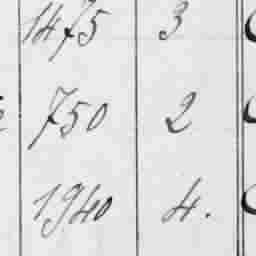 1475 3
750 2
1940 4.